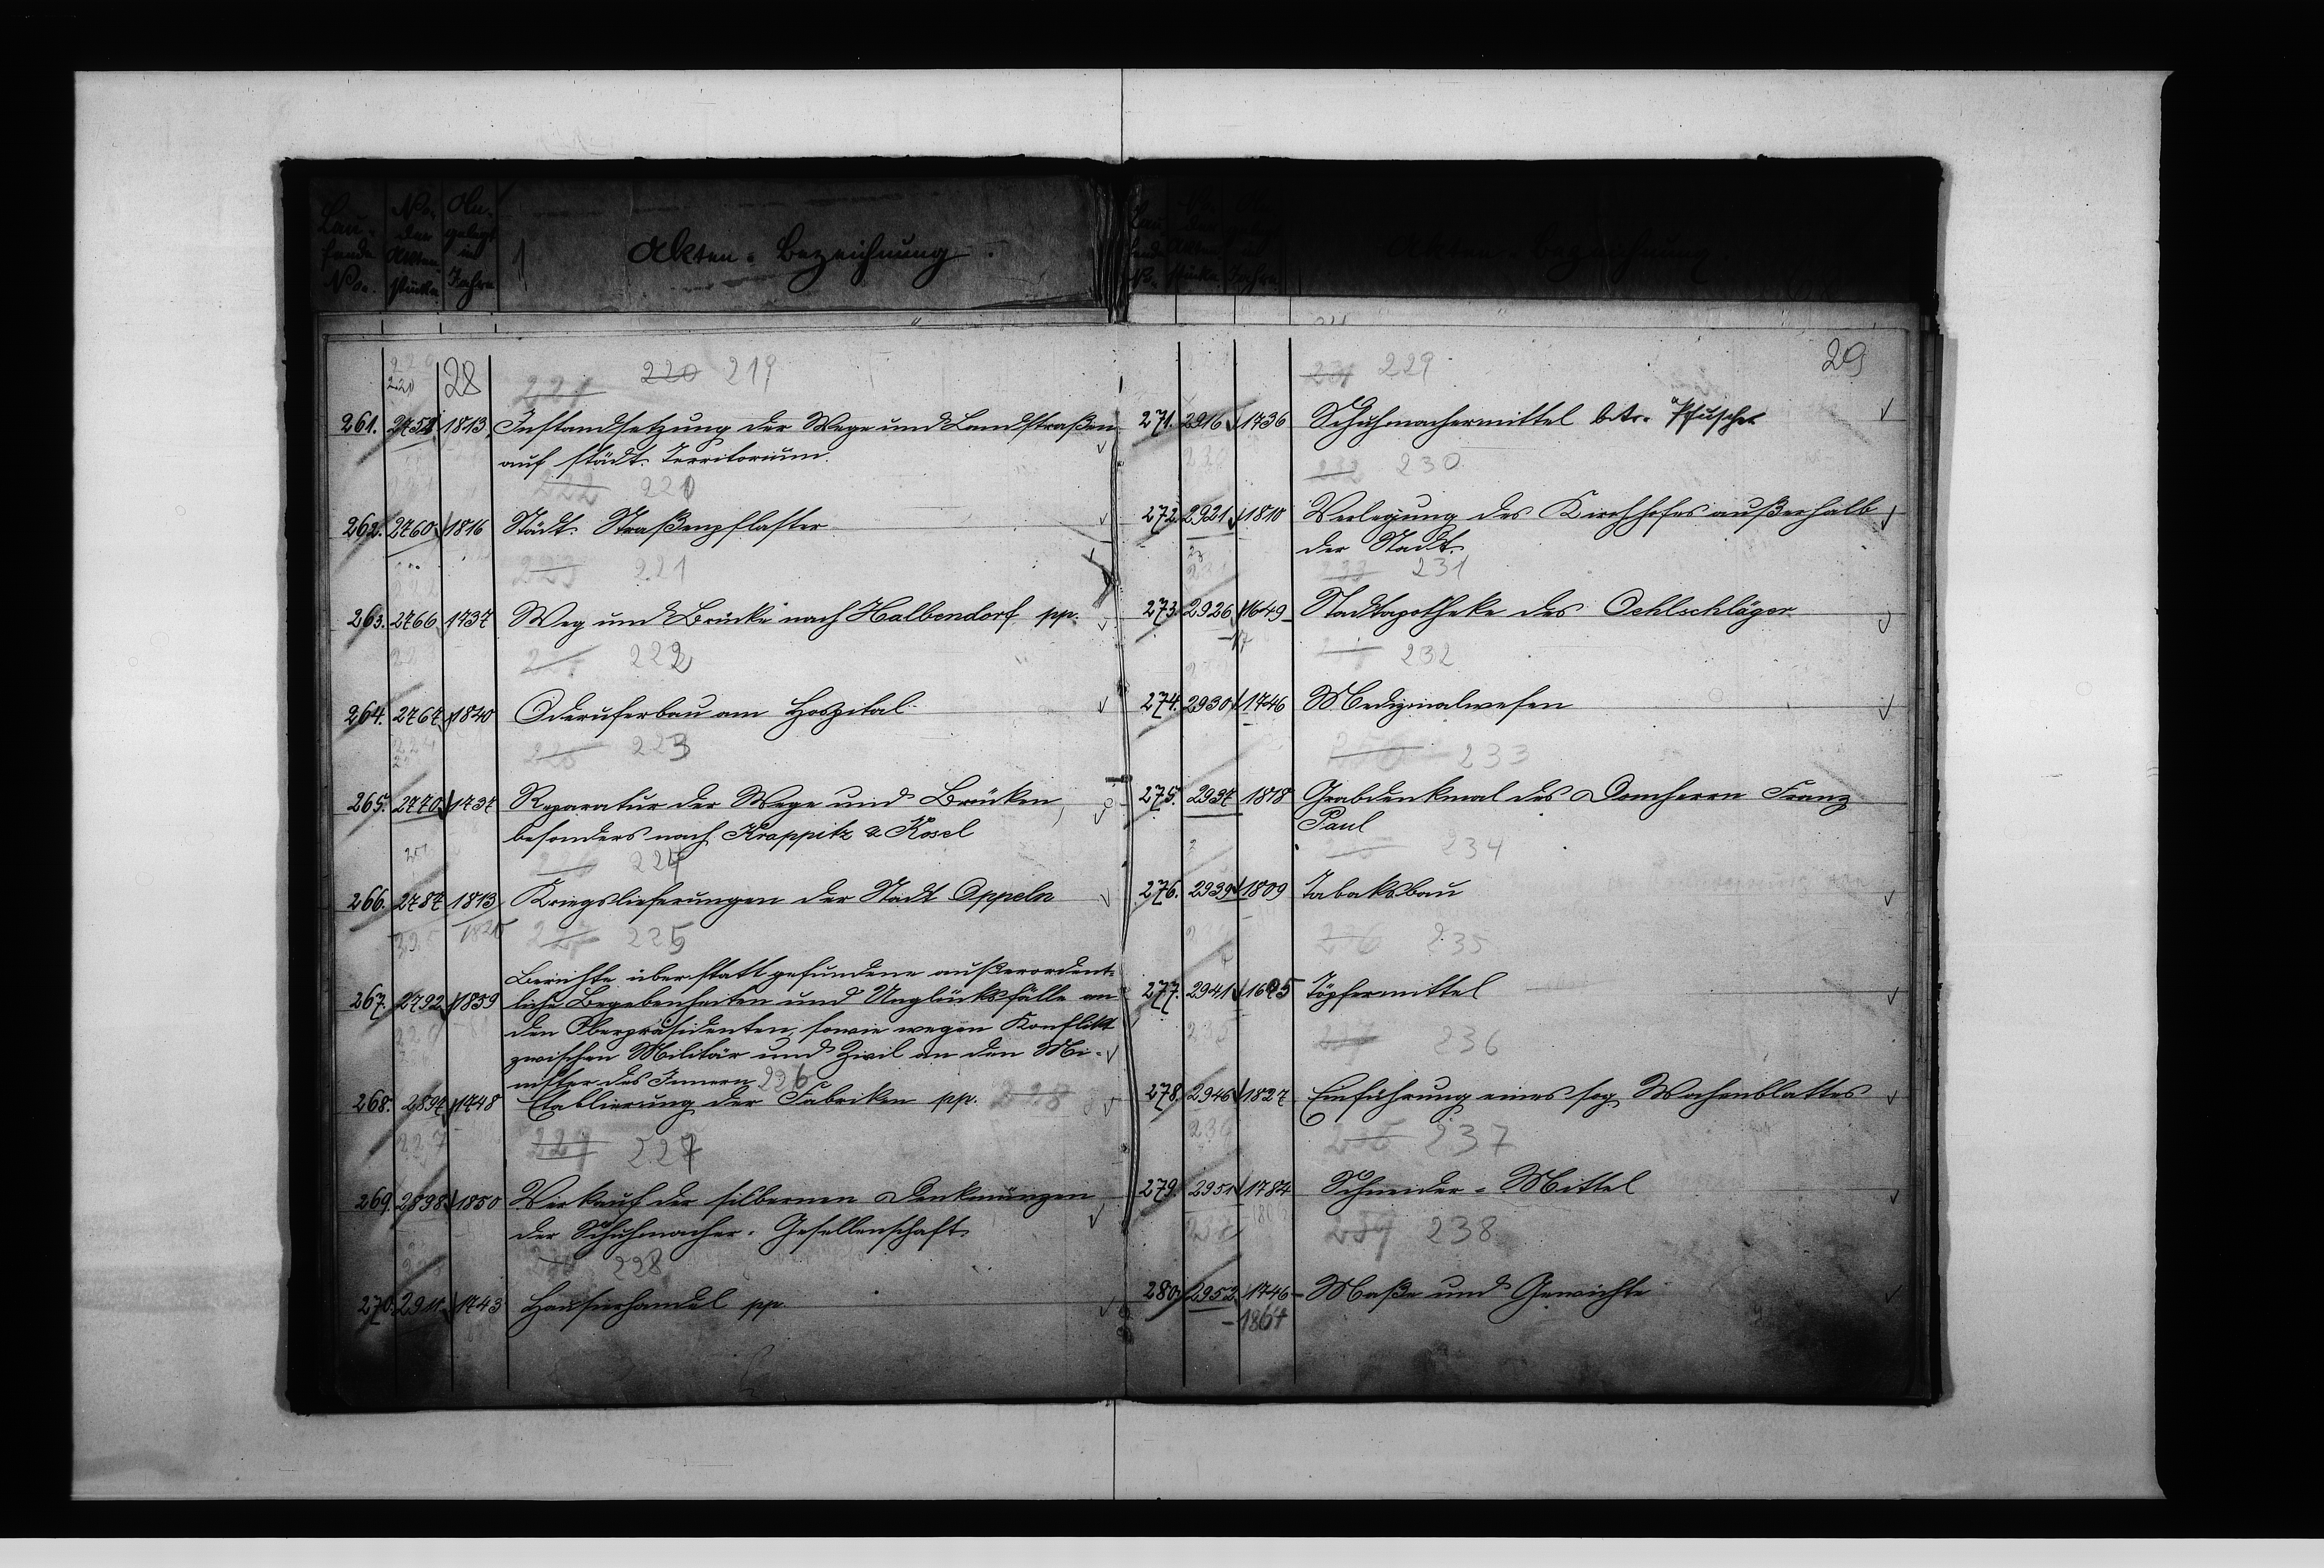 Lau-
fende
No.
No.
der
Akten-
stücke
An-
gelegt
im
Jahre
Akten-Bezeichnung.
28
221 220 219
261. 2758 1813 Instandsetzung der Wege und Landstraßen
auf städt. Territorium.
222 220
262. 2760 1816 Städt. Straßenpflaster
223 221
263. 2766 1737 Weg und Brücke nach Halbendorf pp.
222
264. 2767 1840 Oderuferbau am Hospital
225 223
265. 2770 1737 Reparatur der Wege und Brücken,
besonders nach Krappitz & Kosel
226 224
266. 2787 1813 Kriegslieferungen der Stadt Oppeln
227 225
Berichte über stattgefundene außerordent-
267. 2792 1839 liche Begebenheiten und Unglücksfälle an
den Oberpräsidenten, sowie wegen Konflikt
zwischen Militär und Zivil an den Mi-
nister des Innern 226
268. 2897 1748 Etablierung der Fabriken pp. 228
229 227
269. 2898 1850 Verkauf der silbernen Denkmünzen
der Schuhmacher-Gesellenschaft
228
270. 2911 1743 Hausierhandel pp.
Akten-Bezeichnung.
29
231 229
271. 2916 1736 Schuhmachermittel btr. Pfuscher
232 230
272. 2921 1810 Verlegung des Kirchhofes außerhalb
der Stadt.
233 231
273. 2926 1649 Stadtapotheke des Oehlschläger
232
274. 2930 1746 Medizinalwesen
233
275. 2937 1818 Grabdenkmal des Domherrn Franz
Paul
234
276. 2939 1809 Tabaksbau
236 235
277. 2941 1695 Töpfermittel
236
278. 2946 1827 Einführung eines sog. Wochenblattes
237
279. 2951 1784 Schneider-Mittel
239 238
280. 2952 1746- Maße und Gewichte
-1867